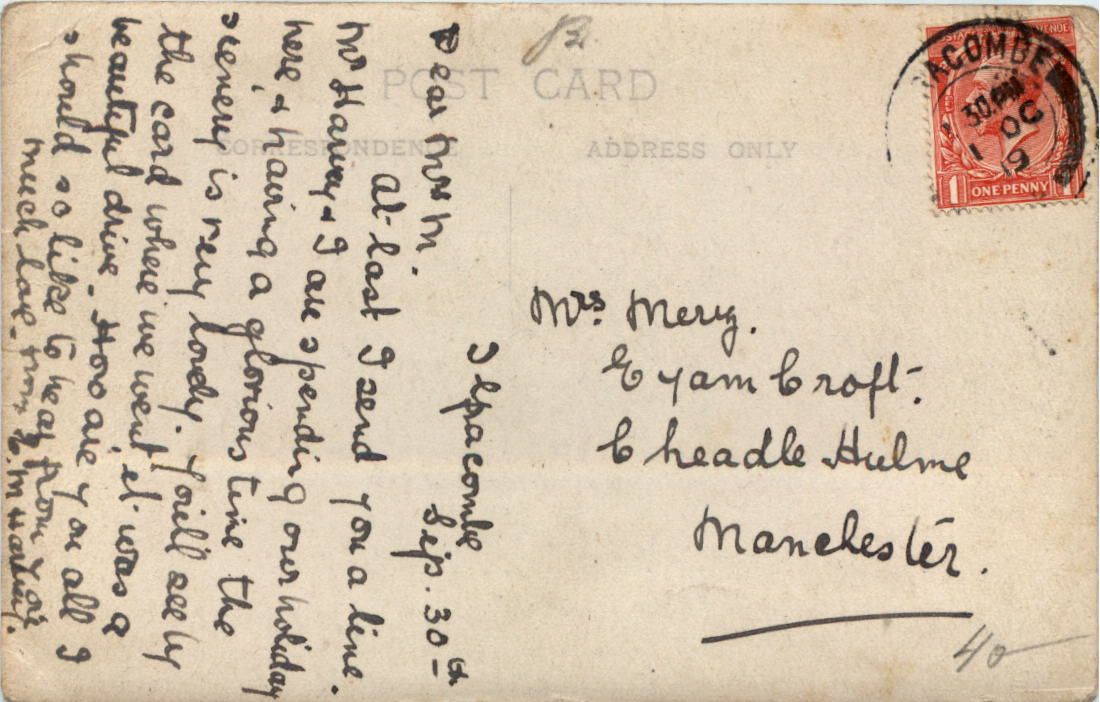 POST CARD
CORRESPONDENCE
ADDRESS ONLY
Ilfracombe
Sep. 30th
Dear Mrs M.
At last I send you a line.
Mr Harvey & I are spending our holiday
here & having a glorious time the
scenery is very lovely. You'll see by
the card where we went, it was a
beautiful drive. How are you all I
should so like to hear from you
much love from E. M Harvey.
Mrs. Merry.
Eyam Croft.
Cheadle Hulme
Manchester.
RACOMBE
30.PM
1 OC
19
POSTAGE REVENUE
1 ONE PENNY 1
40